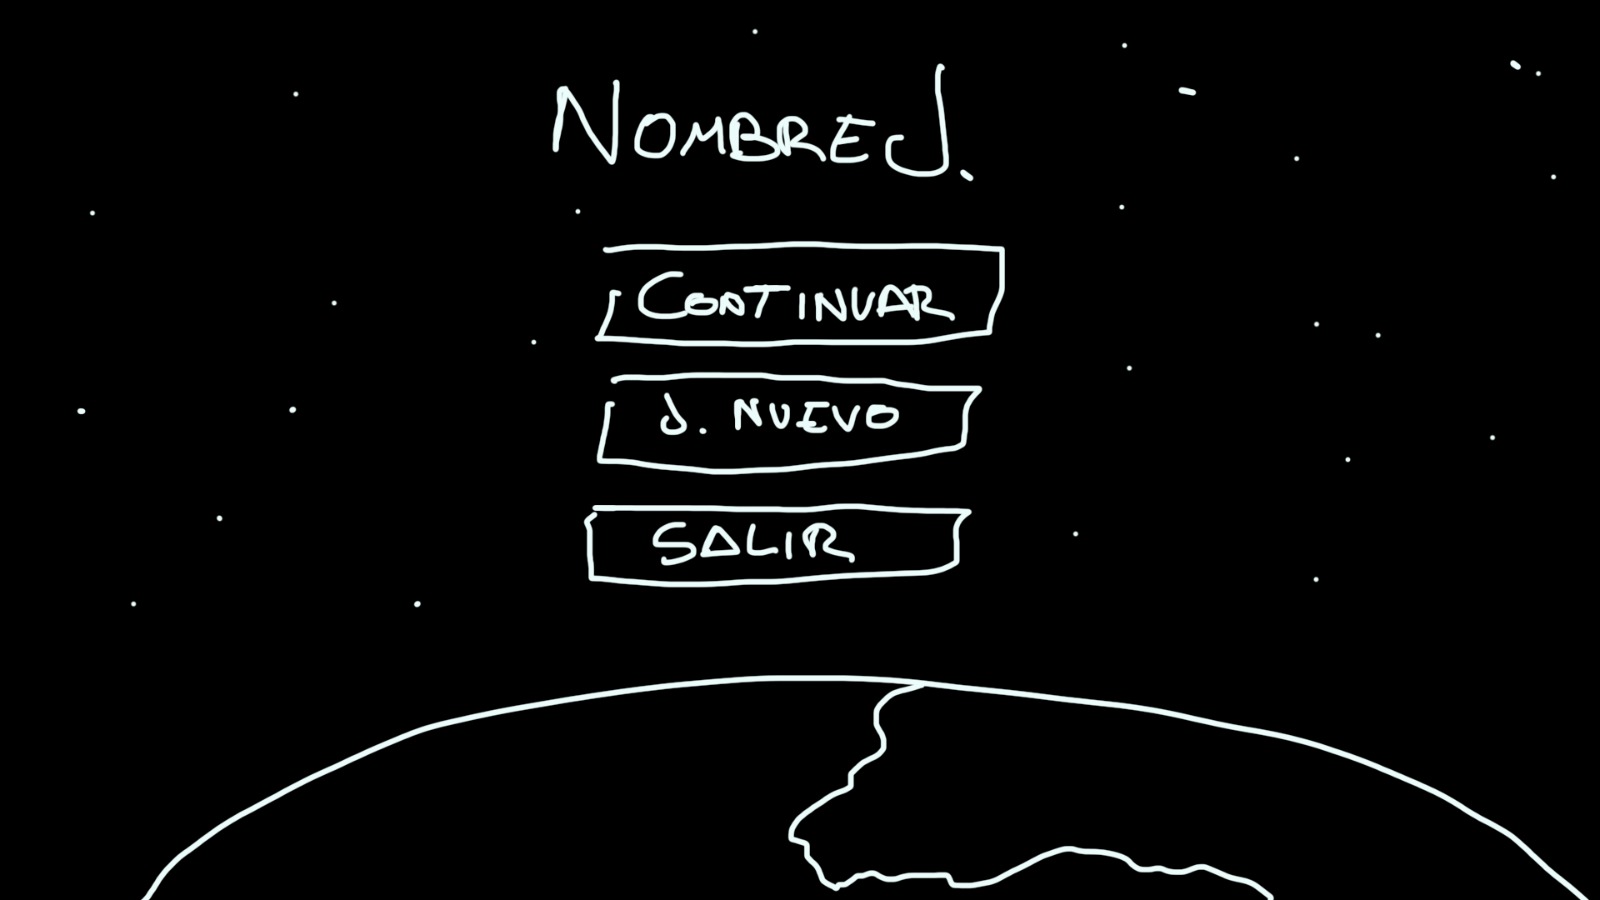 NOMBRE J.
CONTINUAR
J. NUEVO
SALIR